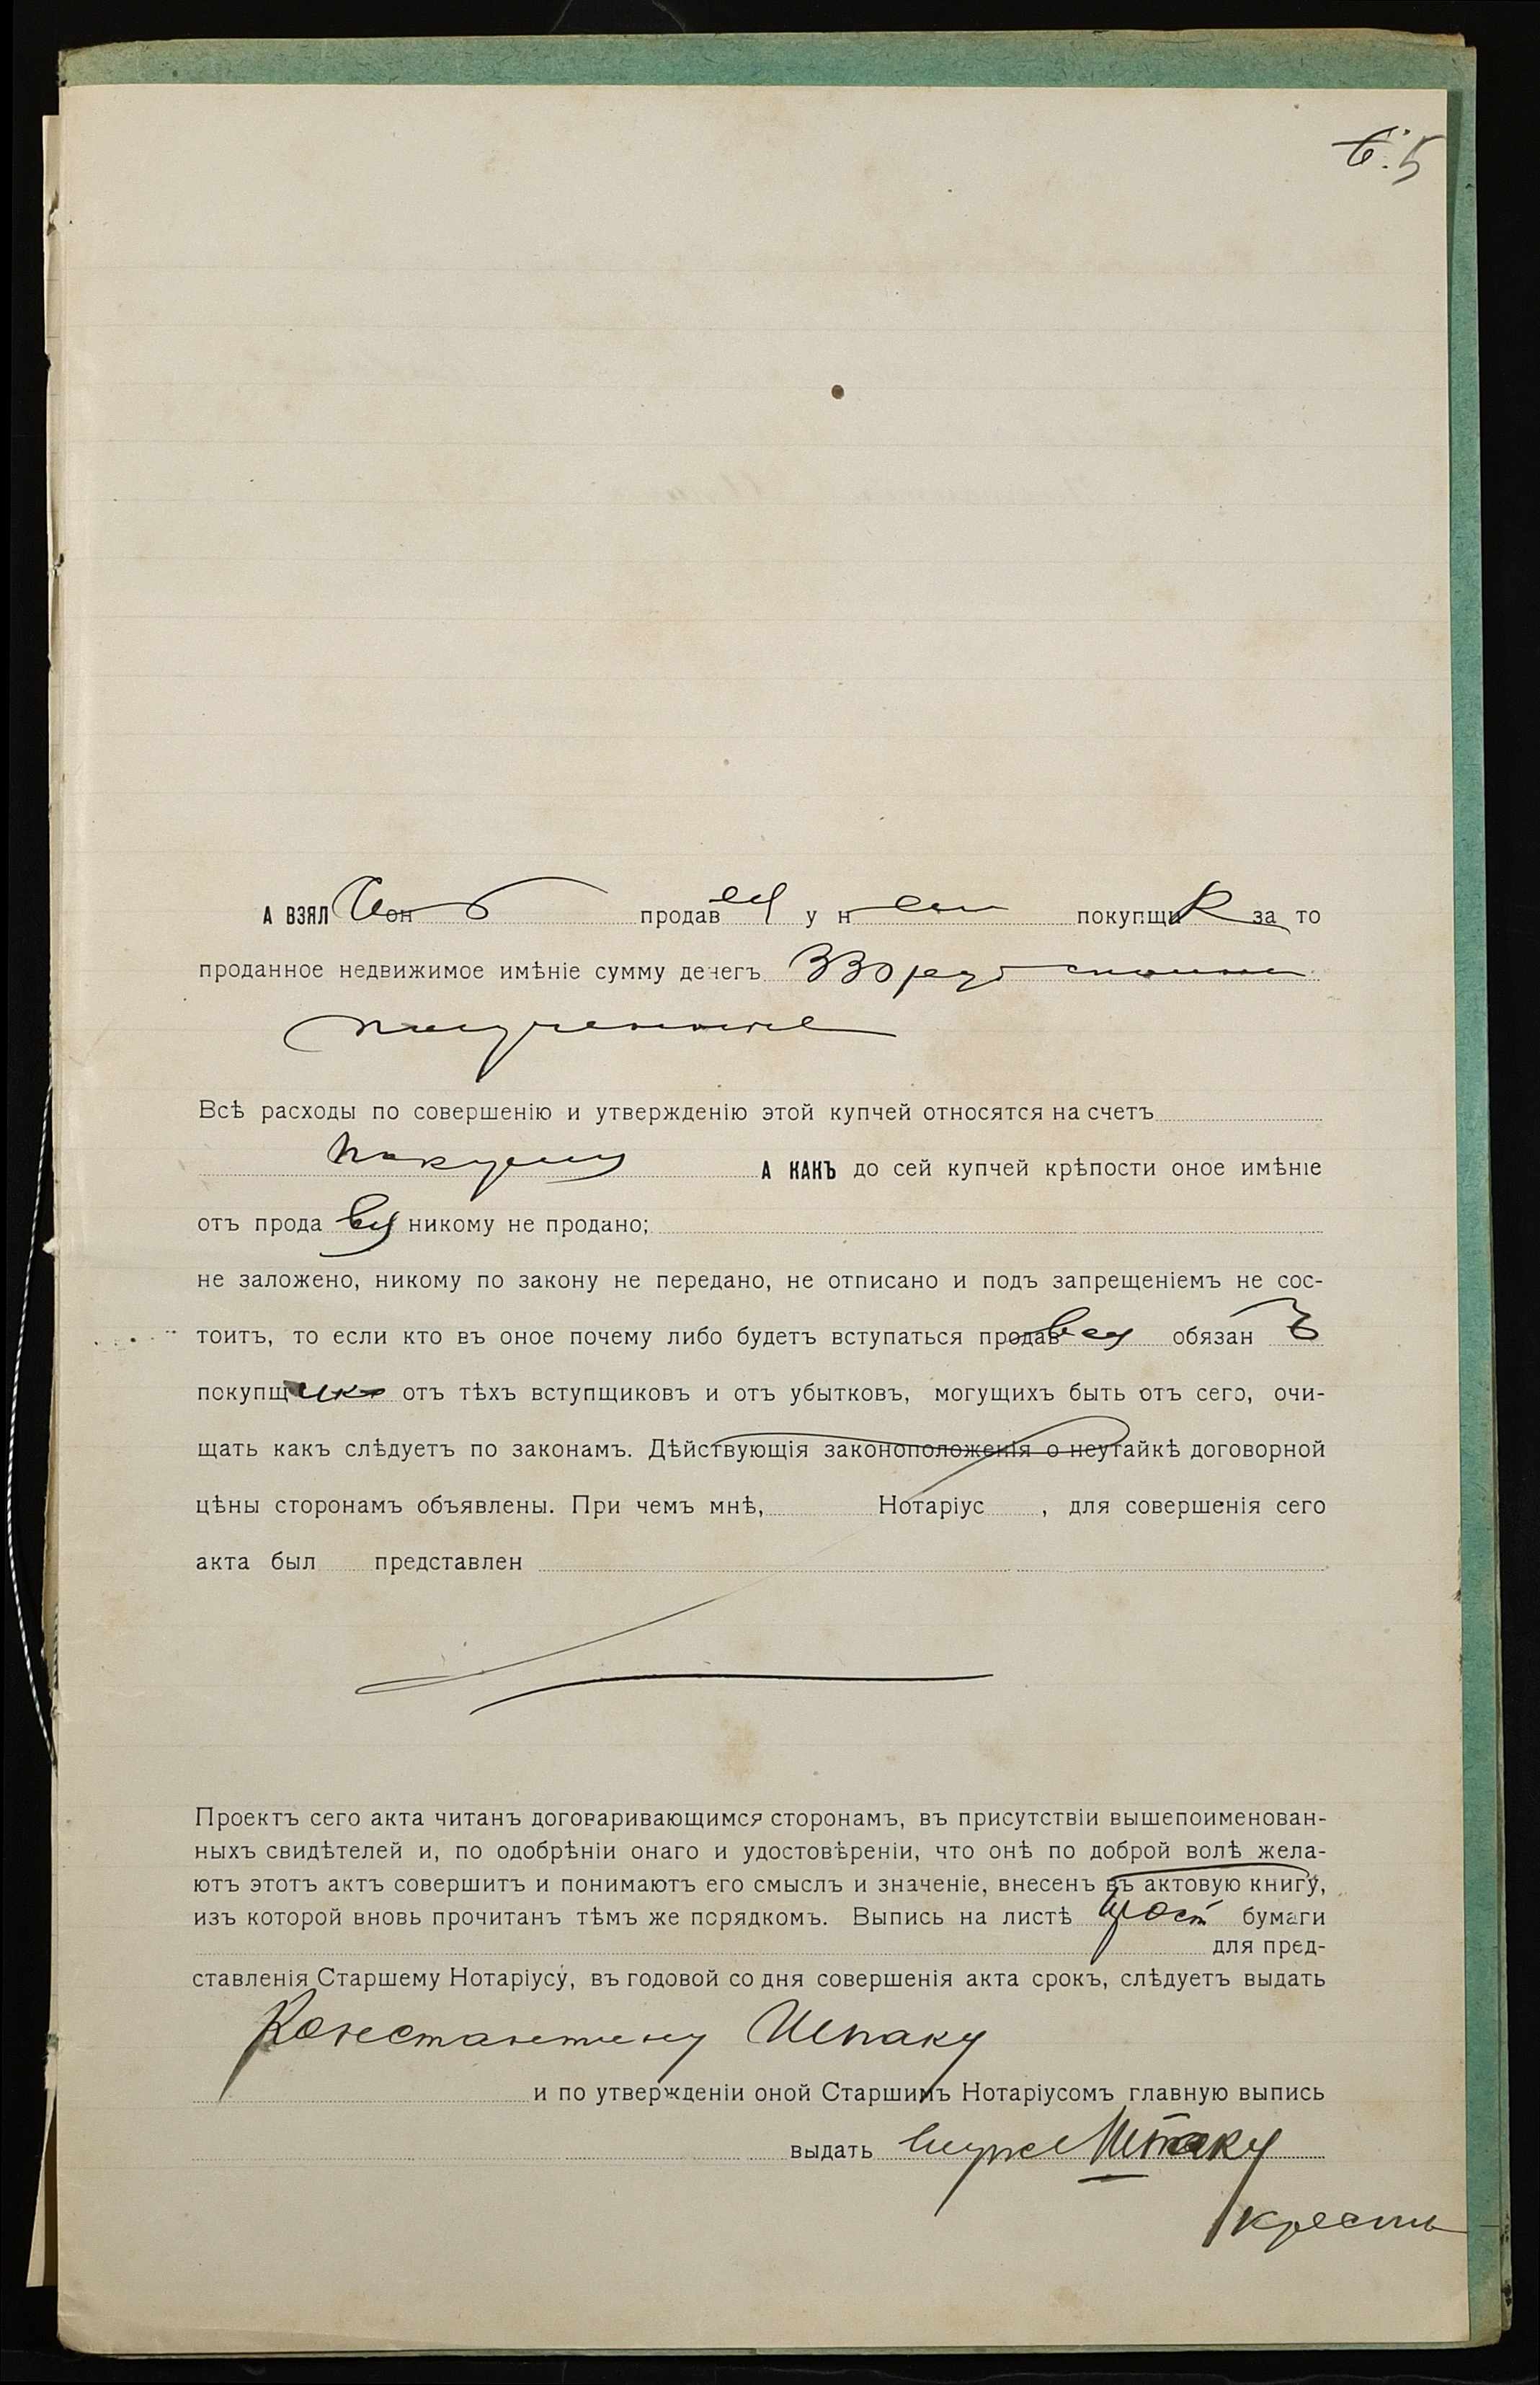 6. 5
А ВЗЯЛ онъ продавец у н покупщик за то
проданное недвижимое имѣніе сумму денегъ 330 руб сполна
полученные
Всѣ расходы по совершенію и утвержденію этой купчей относятся на счетъ
А КАКЪ до сей купчей крѣпости оное имѣніе
отъ прода вц никому не продано;
не заложено, никому по закону не передано, не отписано и подъ запрещеніемъ не сос-
тоитъ, то если кто въ оное почему либо будетъ вступаться продавец обязан ъ
покупщика отъ тѣхъ вступщиковъ и отъ убытковъ, могущихъ быть отъ сего, очи-
щать какъ слѣдуетъ по законамъ. Дѣйствующія законоположенія о неутайкѣ договорной
цѣны сторонамъ объявлены. При чемъ мнѣ, Нотаріус , для совершенія сего
акта был представлен
Проектъ сего акта читанъ договаривающимся сторонамъ, въ присутствіи вышепоименован-
ныхъ свидѣтелей и, по одобрѣніи онаго и удостовѣреніи, что онѣ по доброй волѣ жела-
ютъ этотъ актъ совершить и понимаютъ его смыслъ и значеніе, внесенъ въ актовую книгу,
изъ которой вновь прочитанъ тѣмъ же порядкомъ. Выпись на листѣ прост бумаги
для пред-
ставленія Старшему Нотаріусу, въ годовой со дня совершенія акта срокъ, слѣдуетъ выдать
Константину Шпаку
и по утвержденіи оной Старшимъ Нотаріусомъ главную выпись
выдать ему же Шпаку
кресть